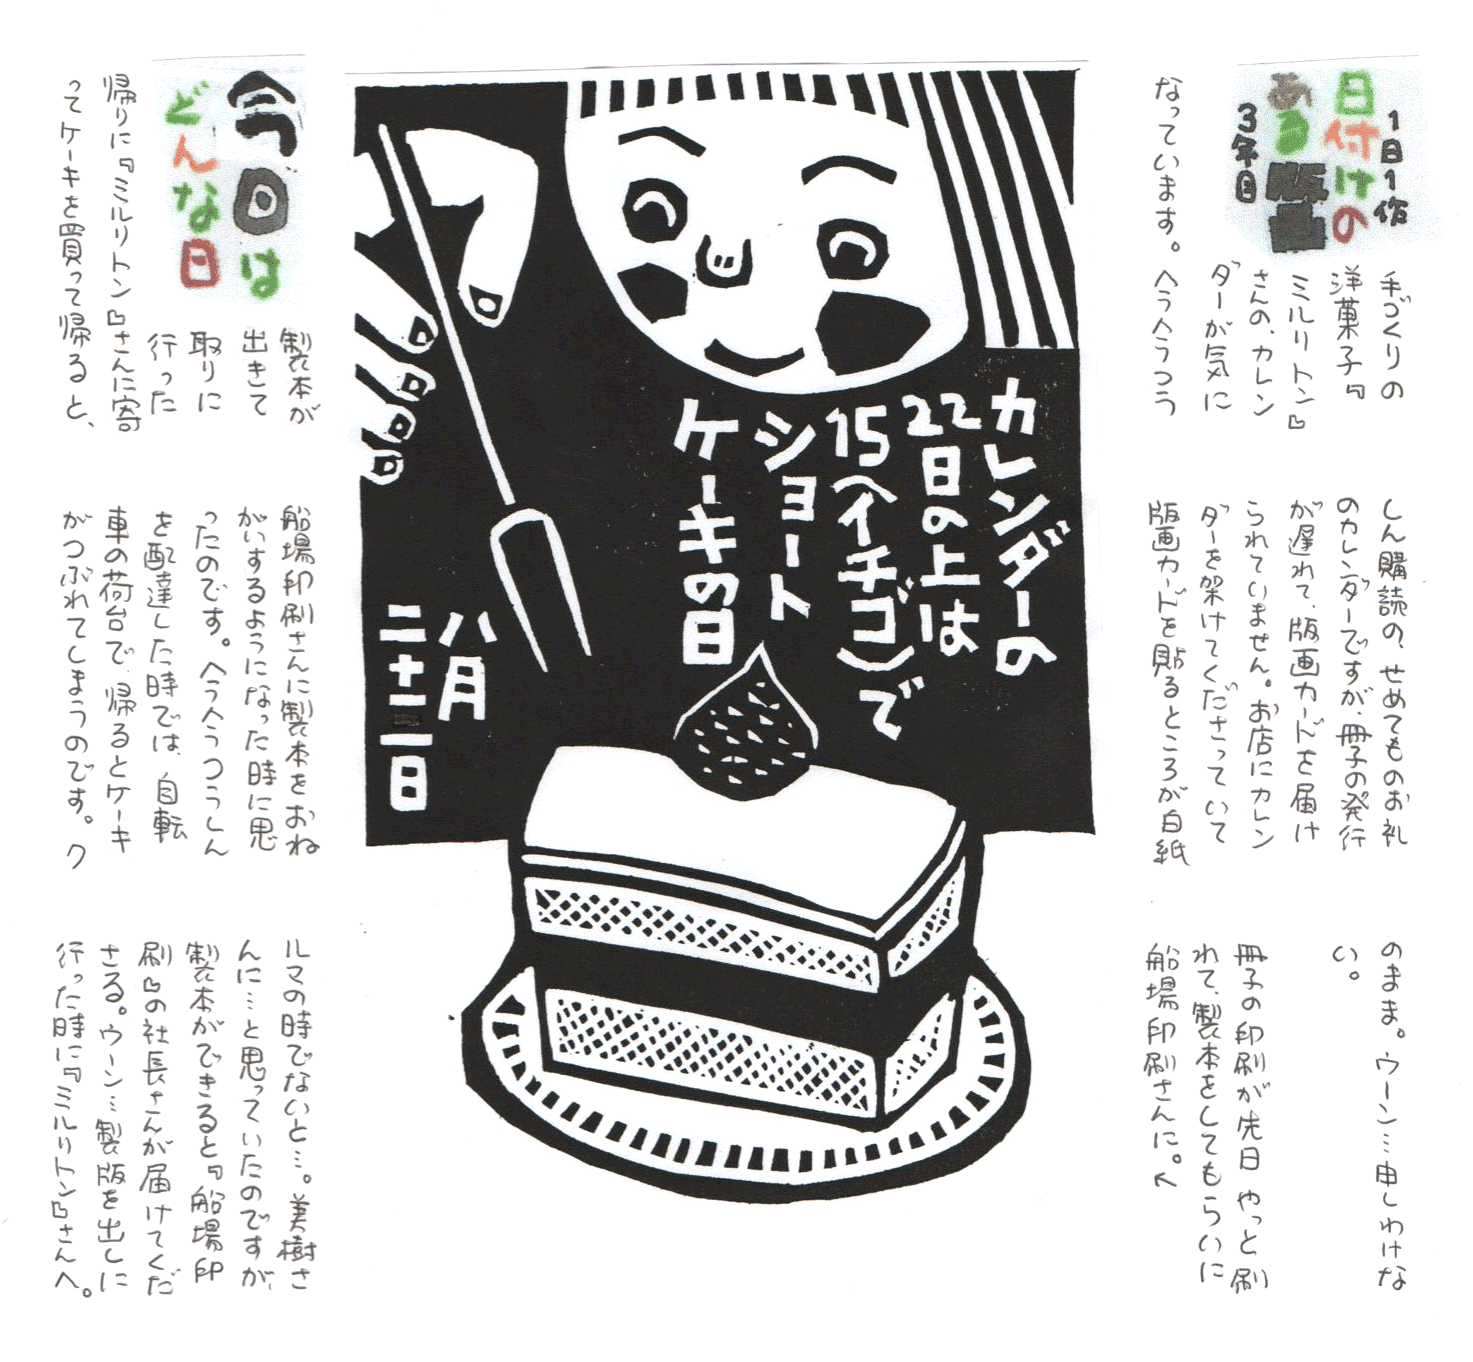 1日1作
日付けの
ある版画
3年目
手づくりの
洋菓子『
ミルリトン』
さんの、カレン
ダーが気に
なっています。へうへうつう
しん購読の、せめてものお礼
のカレンダーですが、冊子の発行
が遅れて、版画カードを届け
られていません。お店にカレン
ダーを架けてくださっていて
版画カードを貼るところが白紙
のまま。ウーン…申しわけな
い。
冊子の印刷が先日やっと刷
れて、製本をしてもらいに
船場印刷さんに。↖
カレンダーの
22日の上は
15(イチゴ)で
ショート
ケーキの日
八月
二十二日
今日は
どんな日
製本が
出きて
取りに
行った
帰りに『ミルリトン』さんに寄
ってケーキを買って帰ると、
船場印刷さんに製本をおね
がいするようになった時に思
ったのです。へうへうつうしん
を配達した時では、自転
車の荷台で、帰るとケーキ
がつぶれてしまうのです。ク
ルマの時でないと…。美樹さ
んに…と思っていたのですが、
製本ができると『船場印
刷』の社長さんが届けてくだ
さる。ウーン…製版を出しに
行った時に『ミルリトン』さんへ。